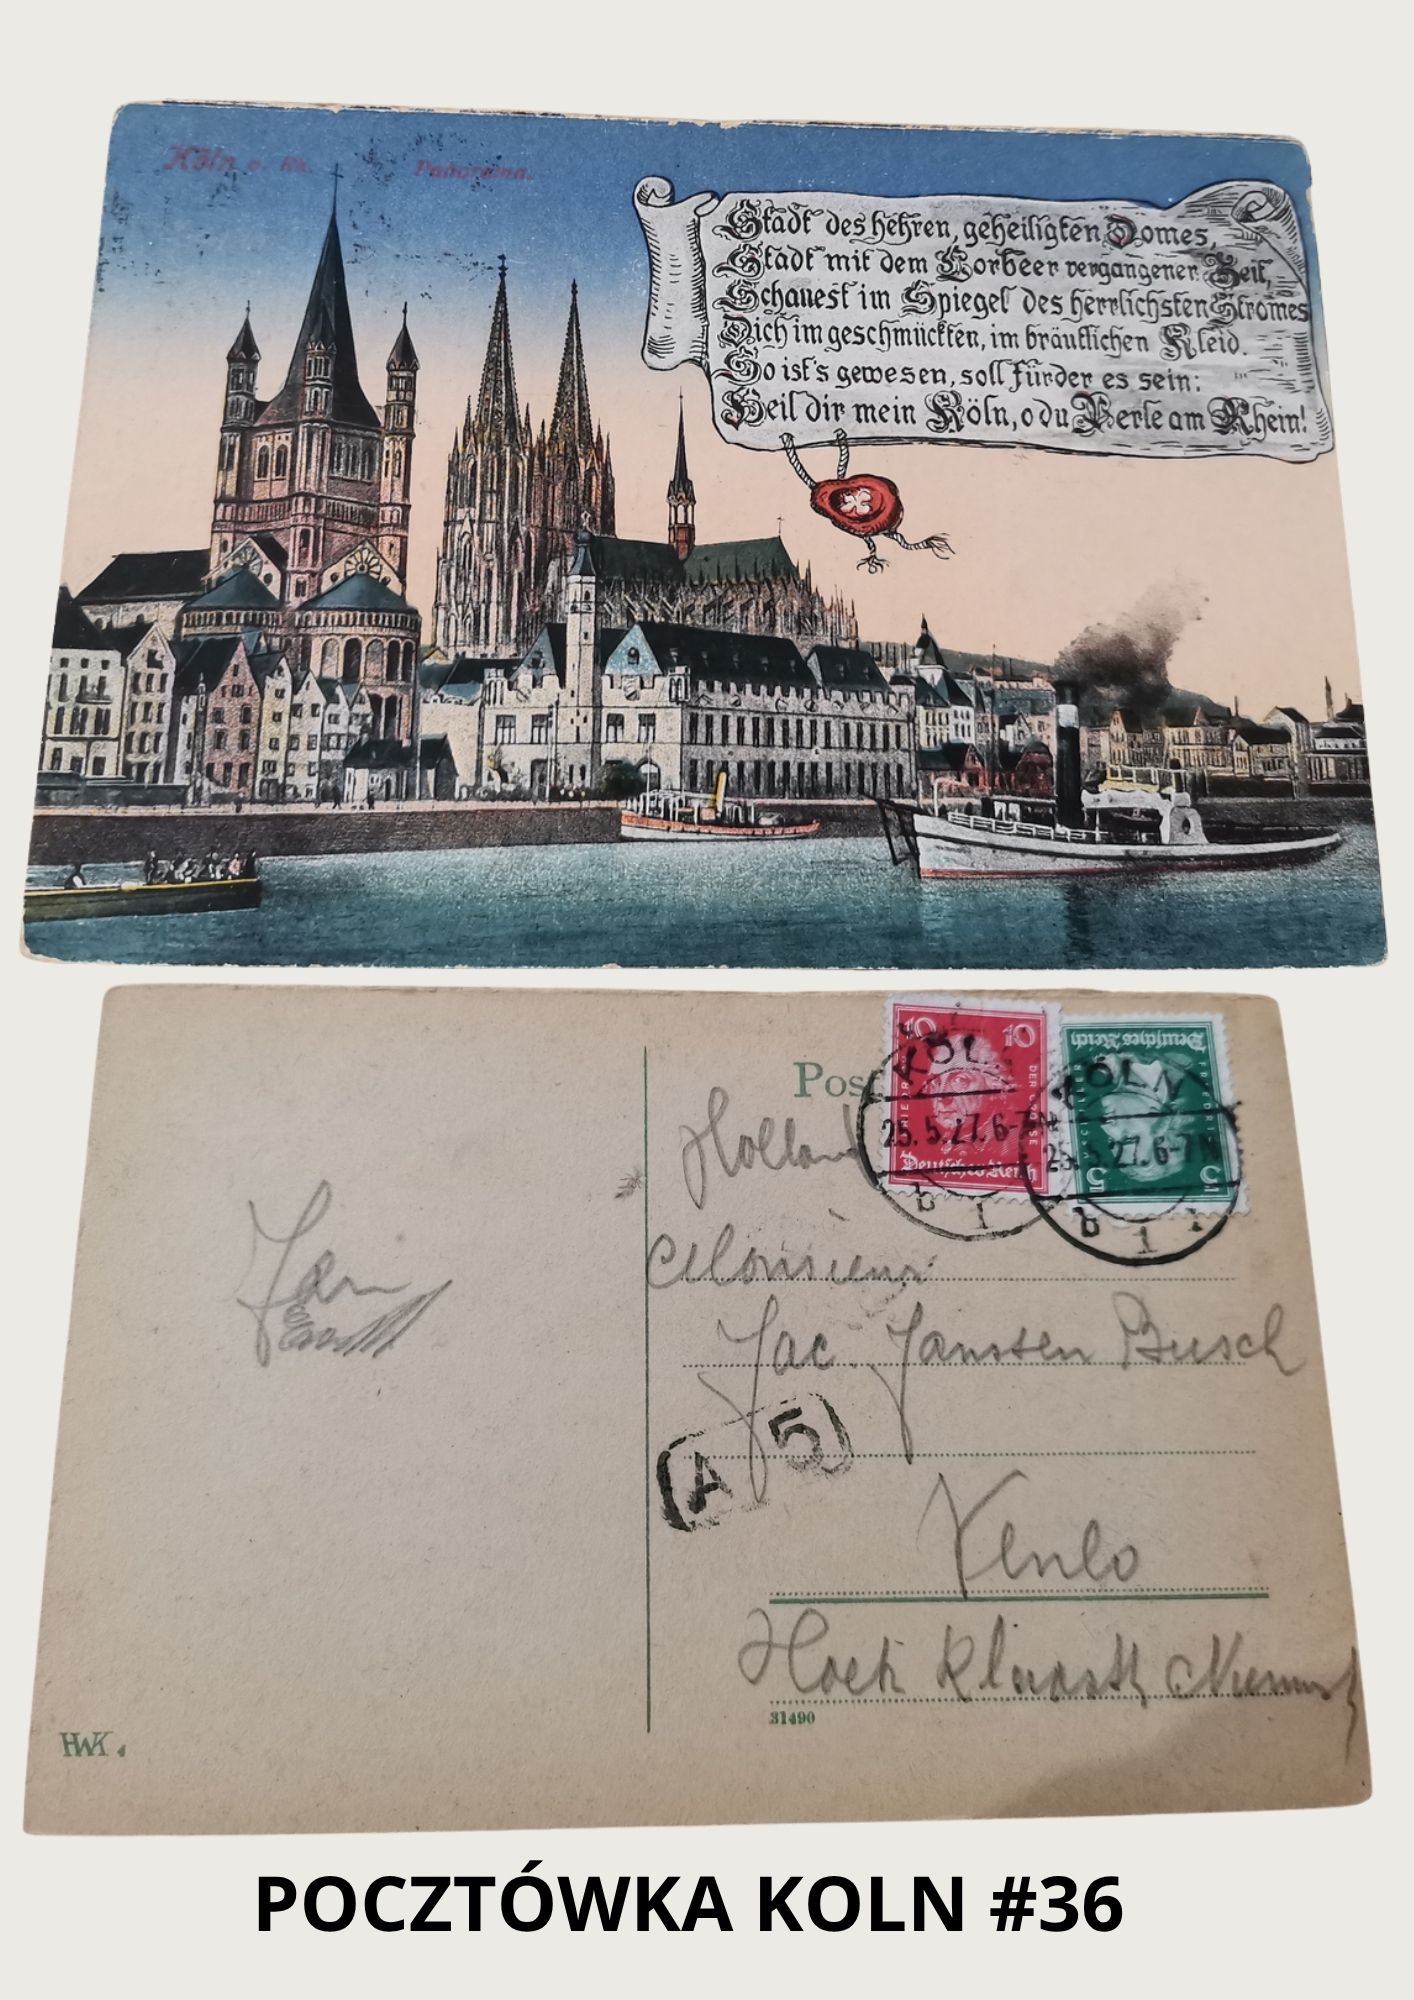 Köln a. Rh. Panorama.
Stadt des hehren, geheiligten Domes,
Stadt mit dem Lorbeer vergangener Zeit,
Schauest im Spiegel des herrlichsten Stromes
Dich im geschmückten, im bräutlichen Kleid.
So ist's gewesen, soll fürder es sein:
Heil dir mein Köln, o du Perle am Rhein!
Post
10 10
FRIEDRICH DER GROSSE
Deutsches Reich
Deutsches Reich
5 5
KÖLN
25.5.27.6-7N
b 1
KÖLN
25.5.27.6-7N
b 1
Holland
Monsieur
Jac. Janssen Busch
A 5
Venlo
31490
HWK
POCZTÓWKA KOLN #36